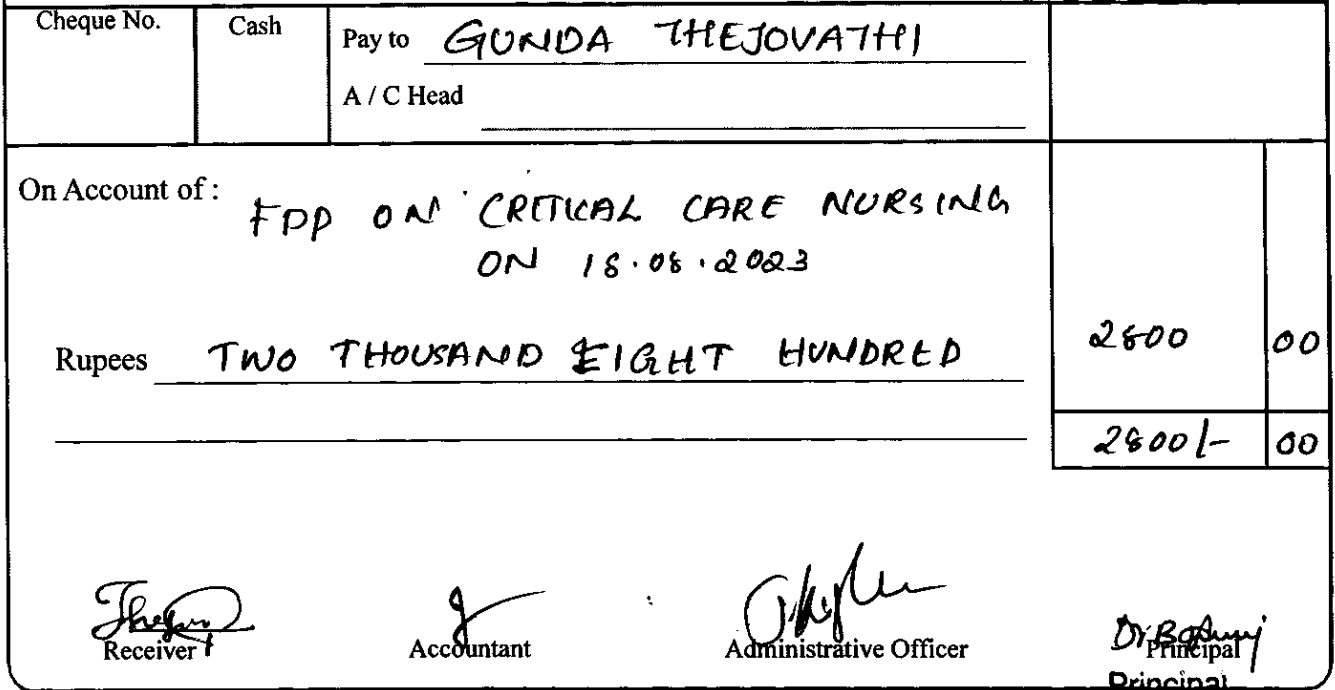 Cheque No. Cash Pay to GUNDA THEJOVATHI
A / C Head
On Account of : FDP ON CRITICAL CARE NURSING
ON 18.08.2023
Rupees TWO THOUSAND EIGHT HUNDRED 2800 00
2800/- 00
Receiver Accountant Administrative Officer Principal
Principal